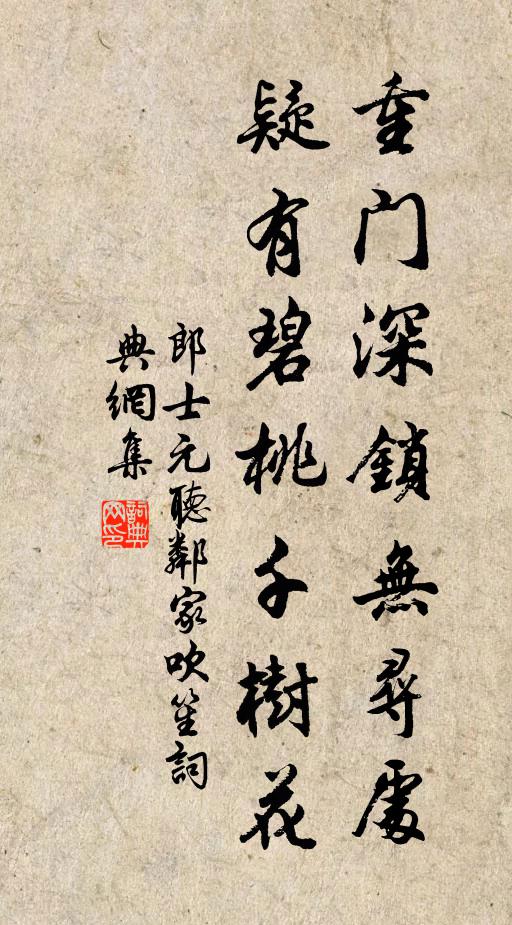 重门深鎖無尋處
疑有碧桃千樹花
郎士元聽鄰家吹笙詞
典網集
詞典
网印